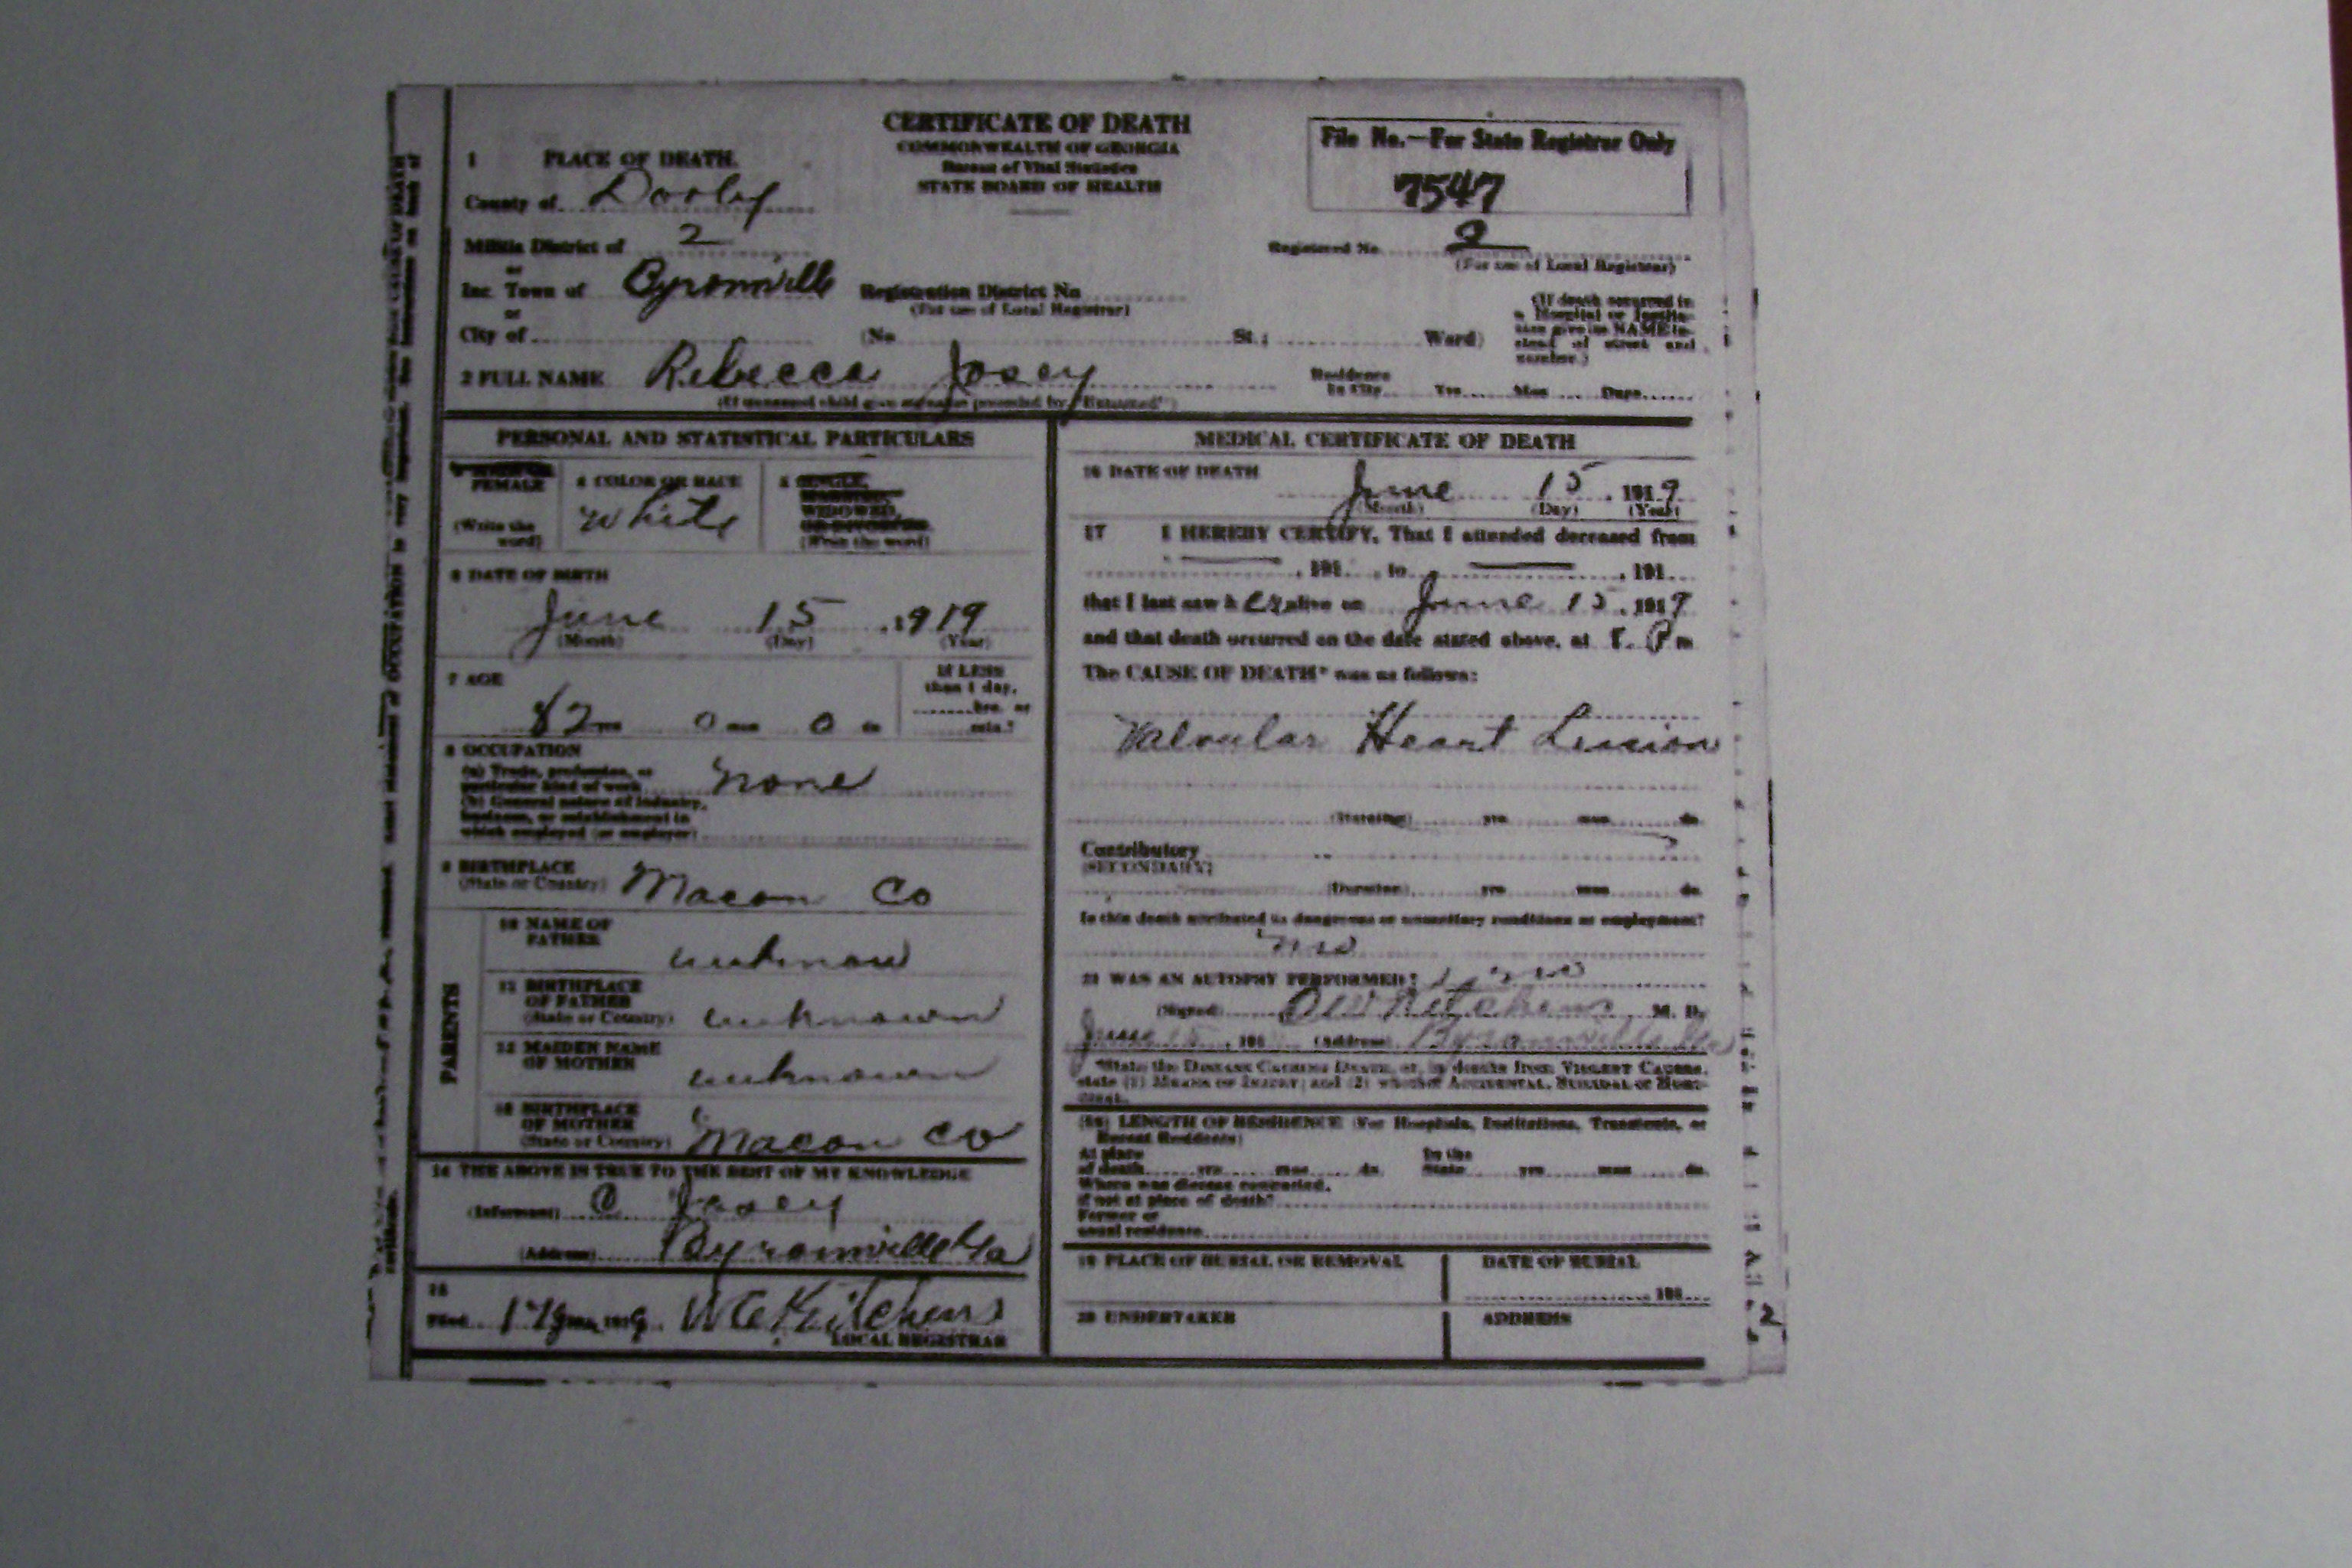 CERTIFICATE OF DEATH
COMMONWEALTH OF GEORGIA
Bureau of Vital Statistics
STATE BOARD OF HEALTH
File No.—For State Registrar Only
7547
1 PLACE OF DEATH
County of Dooly
Militia District of 2
Registered No 2
(For use of Local Registrar)
or
Inc. Town of Byromville
Registration District No
(For use of Local Registrar)
or
City of (No St.; Ward)
(If death occurred in a Hospital or Institution give its NAME instead of street and number.)
2 FULL NAME Rebecca Josey
Residence In City Yrs Mos Days
PERSONAL AND STATISTICAL PARTICULARS
FEMALE
(Write the word)
4 COLOR OR RACE
White
5 SINGLE,
WIDOWED,
(Write the word)
6 DATE OF BIRTH
June 15, 1919
(Month) (Day) (Year)
7 AGE
82 yrs 0 mos 0 ds
If LESS than 1 day, hrs. or min.?
8 OCCUPATION
(a) Trade, profession, or particular kind of work None
(b) General nature of industry, business, or establishment in which employed (or employer)
9 BIRTHPLACE
(State or Country) Macon Co
PARENTS
10 NAME OF FATHER unknown
11 BIRTHPLACE OF FATHER
(State or Country) unknown
12 MAIDEN NAME OF MOTHER unknown
13 BIRTHPLACE OF MOTHER
(State or Country) Macon Co
14 THE ABOVE IS TRUE TO THE BEST OF MY KNOWLEDGE
(Informant) C Josey
(Address) Byromville Ga
15
Filed 17 1919 Kitchens
LOCAL REGISTRAR
MEDICAL CERTIFICATE OF DEATH
16 DATE OF DEATH
June 15, 1919
(Month) (Day) (Year)
17 I HEREBY CERTIFY, That I attended deceased from
, 191 , to , 191
that I last saw her alive on June 15, 1919
and that death occurred on the date stated above, at P m
The CAUSE OF DEATH* was as follows:
Valvular Heart Lession
(Duration) yrs mos ds
Contributory
(SECONDARY)
(Duration) yrs mos ds
Is this death attributed to dangerous or unsanitary conditions or employment?
no
21 WAS AN AUTOPSY PERFORMED? no
(Signed) Kitchens M. D.
June 15, 191 (Address) Byromville Ga
*State the DISEASE CAUSING DEATH, or, in deaths from VIOLENT CAUSES, state (1) MEANS OF INJURY; and (2) whether ACCIDENTAL, SUICIDAL or HOMICIDAL.
LENGTH OF RESIDENCE (For Hospitals, Institutions, Transients, or Recent Residents)
At place of death yrs mos ds In the State yrs mos ds
Where was disease contracted,
if not at place of death?
Former or
usual residence
19 PLACE OF BURIAL OR REMOVAL
DATE OF BURIAL
191
20 UNDERTAKER
ADDRESS
2